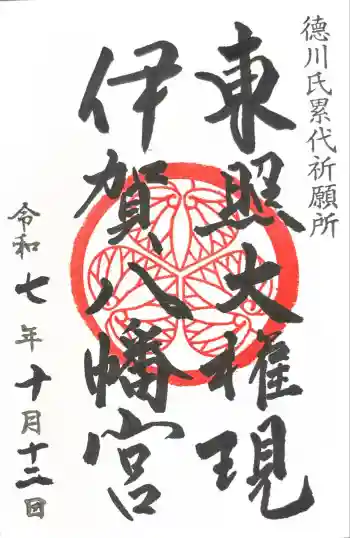 徳川氏累代祈願所
東照大権現
伊賀八幡宮
令和七年十月十二日